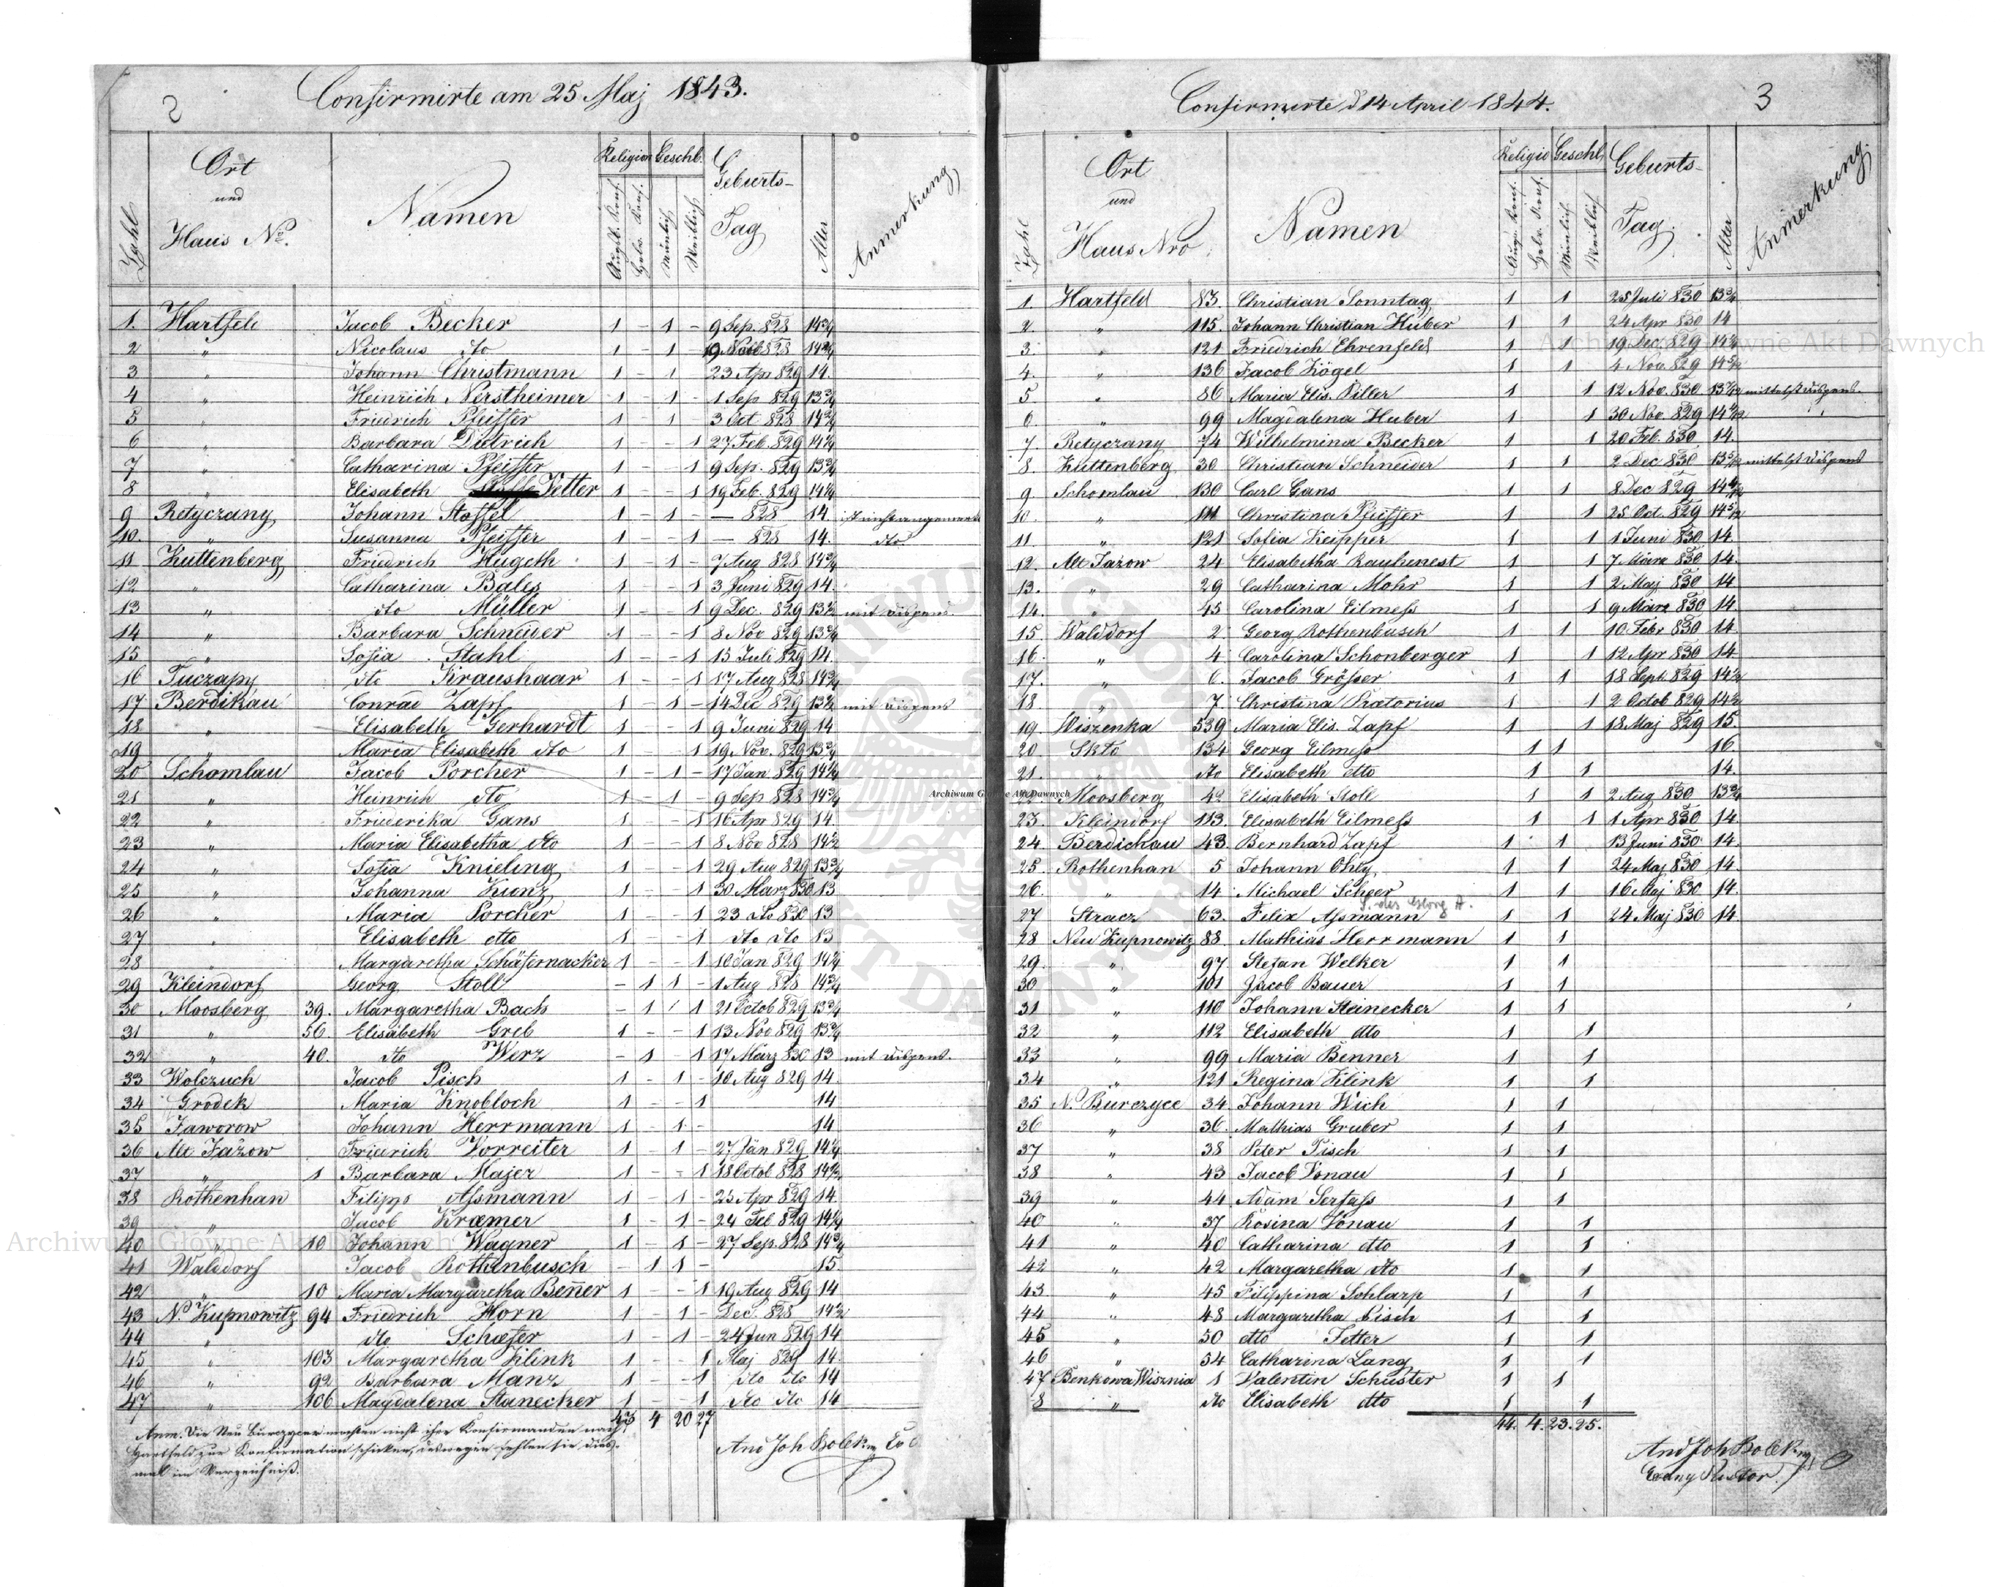 2
Confirmirte am 25 Maj 1843.
Zahl
Ort
und
Haus No.
Namen
Religion
Geschl.
Augsb. Konf.
Helv. Konf.
Mänlich
Weiblich
Geburts-
Tag
Alter
Anmerkung
1. Hartfeld Jacob Becker 1 - 1 - 9 Sep. 828
2 " Nicolaus dto 1 - 1 828
3 " Johann Christmann 1 - 1 23 Apr 829 14
4 " Heinrich Nerstheimer 1 - 1 - 1 Sep 829
5 " Friedrich Pfeiffer 1 - 1 3 Oct 828
6 " Barbara Dietrich 1 - - 1 27 Feb. 829
7 " Catharina Pfeiffer 1 - - 1 9 Sep. 829
8 " Elisabeth Vetter 1 - - 1 19 Feb. 829
9 Retyczany Johann Stoffel 1 - 1 - — 828 14
10. " Susanna Pfeiffer 1 - - 1 — 828 14. dto
11 Kuttenberg Friedrich Hugeth 1 - 1 - 7 Aug 828
12 " Catharina Bales 1 - - 1 3 Juni 829 14.
13 " dto Müller 1 - - 1 9 Dec. 829 mit dispens.
14 " Barbara Schneider 1 - - 1 8 Nov 829
15 " Sofia Stahl 1 - - 1 15 Juli 829 14.
16 Tuczapy dto Kraushaar 1 - - 1 17 Aug 828
17 Berdikau Conrad Zapf 1 - 1 - 14 Dec 829 mit dispens
18 " Elisabeth Gerhardt 1 - - 1 9 Juni 829 14
19 " Maria Elisabeth dto 1 - - 1 19 Nov. 829
20 Schomlau Jacob Porcher 1 - 1 - 17 Jan 829
21 " Heinrich dto 1 - 1 - 9 Sep 828
22 " Friederika Gans 1 - - 1 16 Apr 829 14
23 " Maria Elisabetha dto 1 - - 1 8 Nov 828
24 " Sofia Knieling 1 - - 1 29 Aug 829
25 " Johanna Kunz 1 - - 1 30 März 830 13
26 " Maria Porcher 1 - - 1 23 dto 830 13
27 " Elisabeth dtto 1 - - 1 dto dto 13
28 " Margaretha Schäfernacker 1 - - 1 10 Jan 829
29 Kleindorf Georg Stoll - 1 1 - 1 Aug 828
30 Moosberg 39. Margaretha Bach - 1 1 21 Octob 829
31 " 56 Elisabeth Greb 1 - - 1 13 Nov 829
32 " 40. dto Werz - 1 - 1 17 März 830 13 mit dispens.
33 Wolczuch Jacob Pisch 1 - 1 - 10 Aug 829 14.
34 Grodek Maria Knobloch 1 - - 1 14
35 Jaworow Johann Herrmann 1 - 1 - 14
36 Alt Jažow Friedrich Vorreiter 1 - 1 - 27 Jän 829
37 " 1 Barbara Majer 1 - - 1 18 Octob 828
38 Rothenhan Filipp Assmann 1 - 1 - 25 Apr 829 14.
39 " Jacob Kræmer 1 - 1 - 24 Feb 829
40 " 10 Johann Wagner 1 - 1 - 27 Sep. 828
41 Waldorf Jacob Rothenbusch - 1 1 - 15.
42 " 10 Maria Margaretha Benner 1 - - 1 19 Aug 829 14
43 N. Kupnowitz 94 Friedrich Horn 1 - 1 - Dec. 828
44 " dto Schæfer 1 - 1 - 24 Jun 829 14
45 " 103 Margaretha Klink 1 - - 1 Maj 829 14.
46 " 92 Barbara Manz 1 - - 1 dto dto 14
47 " 106 Magdalena Stanecker 1 - - 1 dto dto 14
43 4 20 27
Anm. Die Neu Burczycer machten nicht ihre Konfirmanden nach
Hartfeld zur Konfirmation schicken, deswegen fehlen sie dies-
mal im Verzeichniß.
And Joh Bolek
3
Confirmirte d 14 April 1844.
Zahl
Ort
und
Haus Nro
Namen
Religio
Geschl.
Aug. Konf.
Helv. Konf.
Mänlich
Weiblich
Geburts-
Tag.
Alter
Anmerkung.
1. Hartfeld 83. Christian Sonntag 1 1 28 Juli 830
2. " 115. Johann Christian Huber 1 1 24 Apr 830 14
3. " 121 Friedrich Ehrenfeld 1 1 19 Dec. 829
4. " 136 Jacob Kögel 1 1 4 Nov. 829
5 " 86 Maria Elis. Piller 1 1 12 Nov. 830 mittelst dispens.
6 " 99 Magdalena Huber 1 1 30 Nov. 829 "
7. Retyczany 74 Wilhelmina Becker 1 1 20 Feb. 830 14.
8. Kuttenberg 30 Christian Schneider 1 1 2 Dec 830 mittelst dispens
9. Schomlau 130 Carl Gans 1 1 8 Dec 829
10. " 111 Christina Pfeiffer 1 1 25 Oct. 829
11 " 121 Sofia Keipper 1 1 1 Juni 830 14
12. Alt Jažow 24 Elisabetha Rauhenest 1 1 7 März 830 14
13. " 29 Catharina Mohr 1 1 2 Maj 830 14
14. " 45 Carolina Eilmess 1 1 9 März 830 14.
15. Walddorf 2 Georg Rothenbusch 1 1 10 Febr 830 14.
16. " 4 Carolina Schonberger 1 1 12 Apr 830 14
17. " 6. Jacob Grösser 1 1 18 Sept 829
18. " 7. Christina Prætorius 1 1 2 Octob 829
19. Wiszenka 539 Maria Elis. Zapf 1 1 18 Maj 829 15.
20 Skto 134 Georg Eilmess 1 1 16.
21. " dto Elisabeth dtto 1 1 14.
22 Moosberg 42 Elisabeth Stoll 1 1 2 Aug 830
23. Kleindorf 113. Elisabeth Eilmess 1 1 1 Apr 830 14.
24. Berdichau 43 Bernhard Zapf 1 1 13 Juni 830 14.
25. Rothenhan 5 Johann Ohly 1 1 24 Maj 830 14.
26. " 14. Michael Scheer 1 1 16 Maj 830 14.
S. des Georg A.
27 Stracz 63. Felix Assmann 1 1 24 Maj 830 14.
28 Neu Kupnowitz 88 Mathias Herrmann 1 1
29. " 97. Stefan Welker 1 1
30 " 101 Jacob Bauer 1 1
31 " 110 Johann Steinecker 1 1
32 " 112 Elisabeth dto 1 1
33 " 99 Maria Benner 1 1
34 " 121 Regina Klink 1 1
35 N. Burczyce 34 Johann Wich 1 1
36 " 36. Mathias Gruber 1 1
37 " 38 Peter Pisch 1 1
38 " 43 Jacob Vonau 1 1
39 " 44 Adam Serfass 1 1
40 " 37 Rosina Vonau 1 1
41 " 40 Catharina dtto 1 1
42 " 42 Margaretha dto 1 1
43 " 45 Filippina Schlarp 1 1
44 " 48 Margaretha Pisch 1 1
45 " 50 dtto Fetter 1 1
46 " 54 Catharina Lang 1 1
47 Benkowa Wisznia 1 Valentin Schuster 1 1
8 " dto Elisabeth dtto 1 1
44. 4. 23. 25.
And Joh Bolek
Evang Pastor
Archiwum Główne Akt Dawnych
Archiwum Główne Akt Dawnych
Archiwum Główne Akt Dawnych